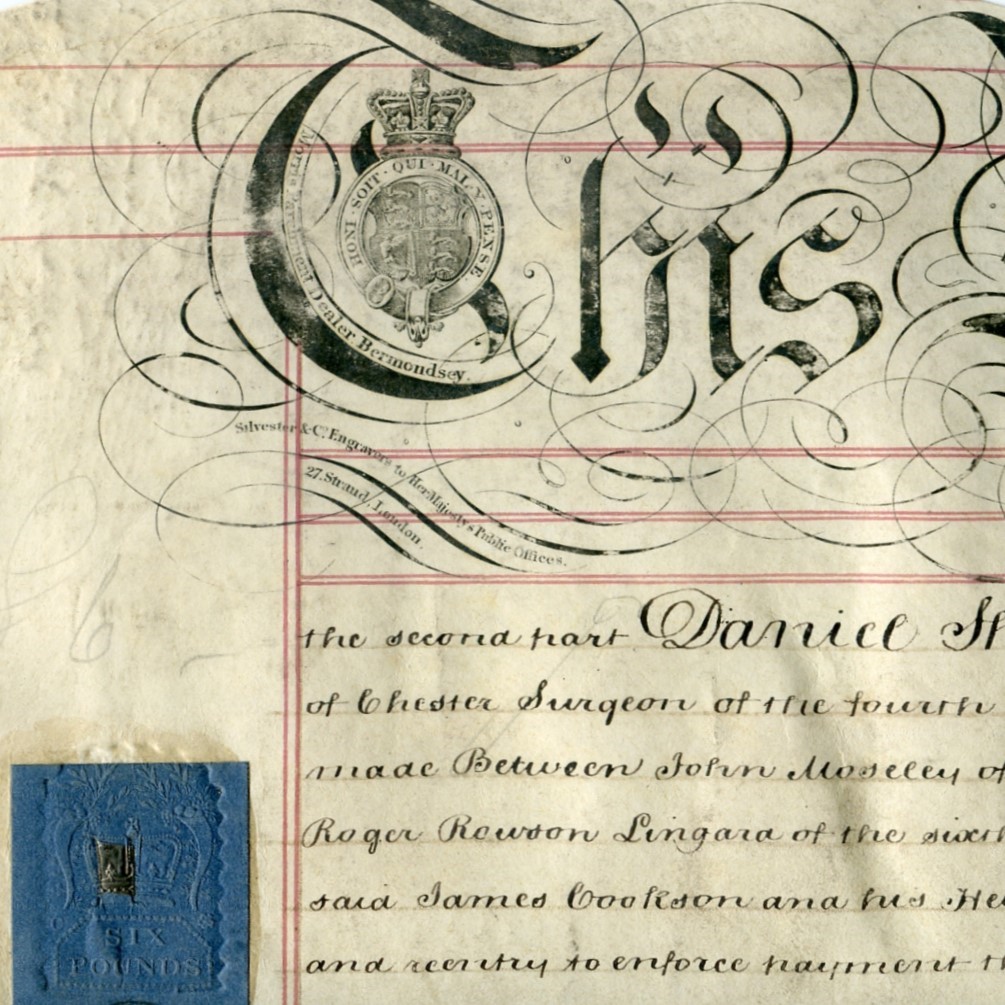 This
HONI · SOIT · QUI · MAL · Y · PENSE
Morris Dealer Bermondsey.
Silvester & Co. Engravers to Her Majesty's Public Offices.
27. Strand, London.
6
the second part Daniel
of Chester Surgeon of the fourth
made Between John Moseley of
Roger Rowson Lingard of the
said James Cookson and his
and reentry to enforce payment
SIX
POUNDS